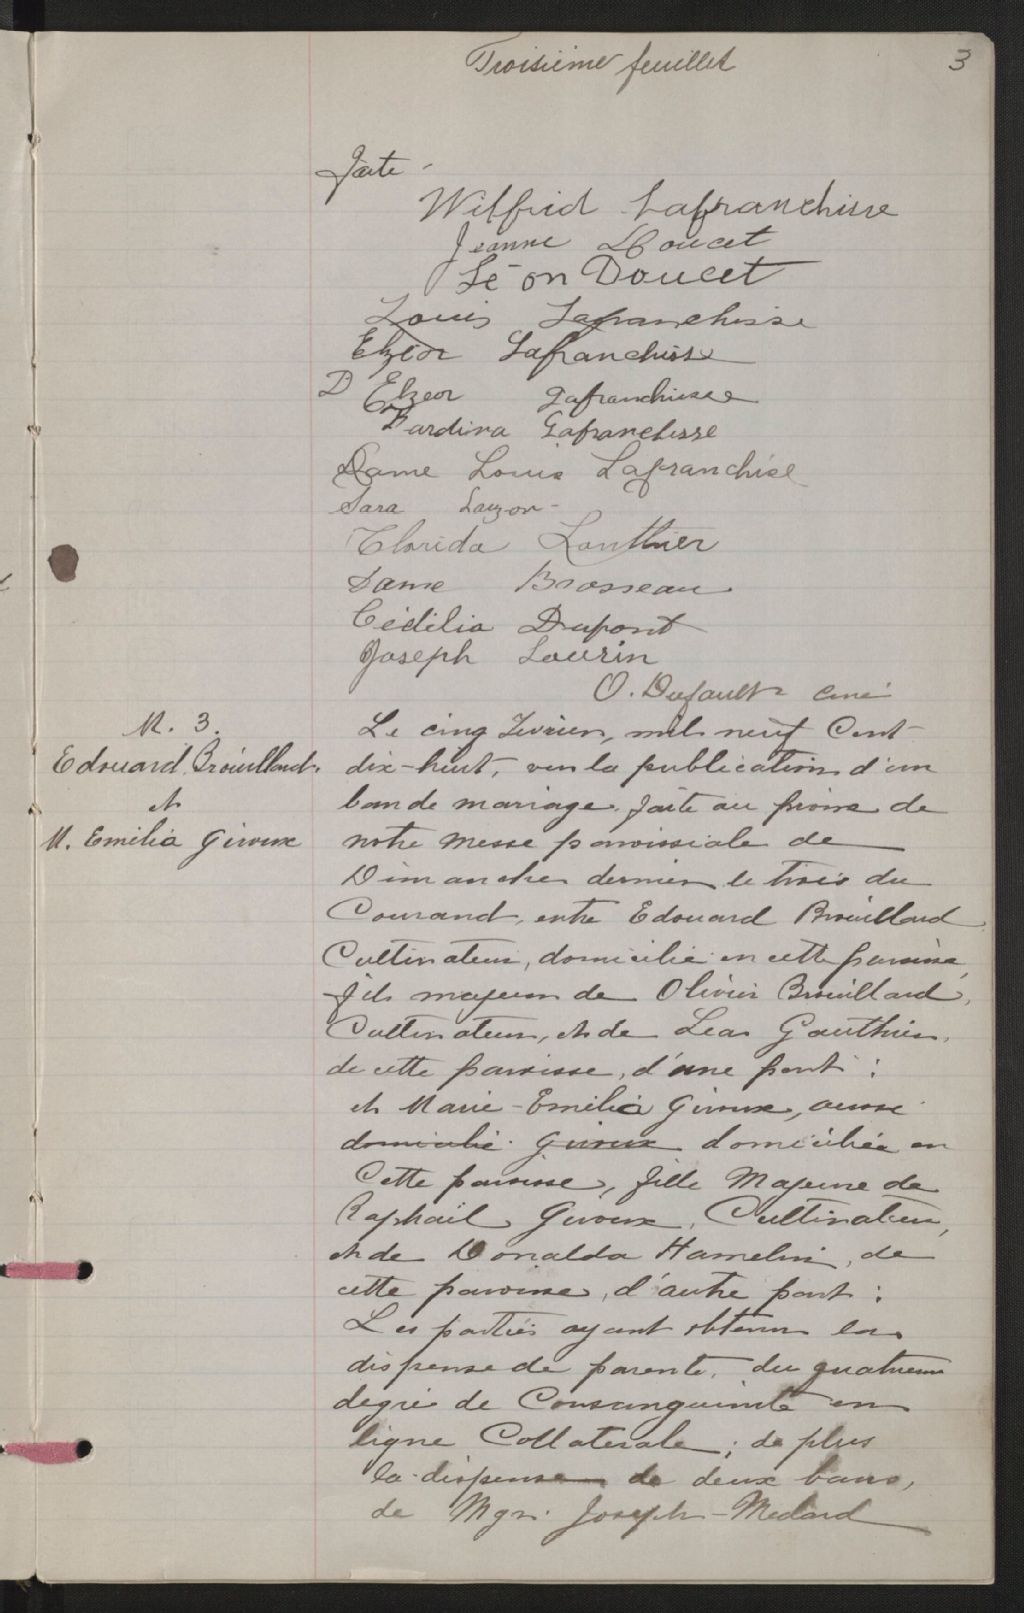 Troisième feuillet
3
faite -
Wilfrid Lafranchise
Jeanne Doucet
Léon Doucet
Louis Lafranchise
Elzéor Lafranchise
D Elzeor Lafranchise
Bardina Lafranchisse
Dame Louis Lafranchise
Sara Lauzon -
Florida Lanthier
Dame Brosseau
Cédilia Dupont
Joseph Laurin
O. Dufault curé
M. 3.
Edouard Brouillard
et
M. Emilia Giroux
Le cinq Fevrier, mil neuf Cent
dix-huit, vu la publication d'un
ban de mariage faite au prone de
notre messe paroissiale de
Dimanche dernier le trois du
Courand, entre Edouard Brouillard
Cultivateur, domicilié en cette paroisse,
fils majeur de Olivier Brouillard,
Cultivateur, et de Lea Gauthier,
de cette paroisse, d'une part :
et Marie-Emilia Giroux, aussi
domicilié Giroux domiciliée en
Cette paroisse, fille Majeure de
Raphaël Giroux, Cultivateur,
et de Donalda Hamelin, de
cette paroisse, d'autre part :
Les parties ayant obtenu la
dispense de parenté du quatrieme
degré de Consanguinité en
ligne Collaterale ; de plus
la dispense de deux bans,
de Mgr. Joseph-Medard